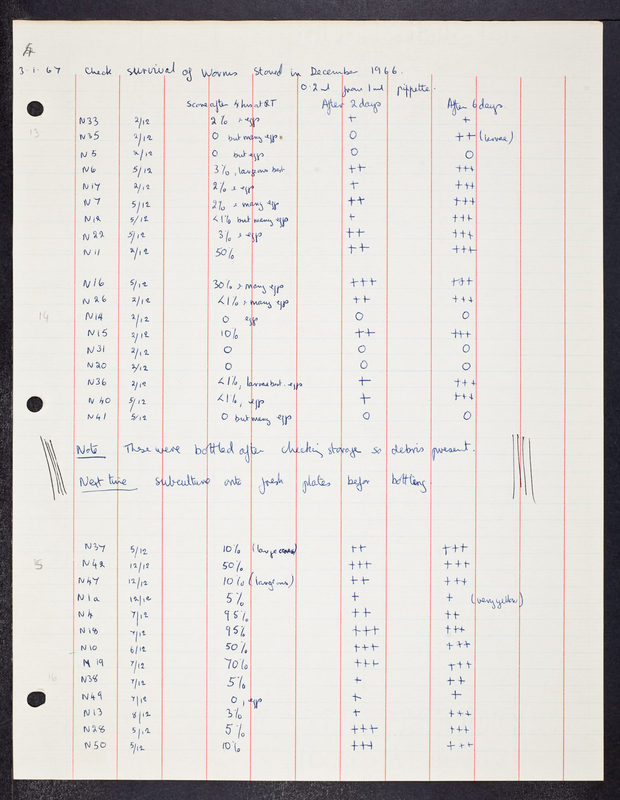 3.1.67 Check survival of Worms stored in December 1966.
0.2ml from 1ml pippette.
Score after 4 hrs at RT After 2 days After 6 days
N33 2/12 2% + eggs + +
13
N35 2/12 0 but many eggs 0 ++ (larvae)
N5 2/12 0 but eggs 0 0
N6 5/12 3%, large ones best ++ +++
N17 2/12 2% + eggs + +++
N7 5/12 2% + many eggs ++ +++
N12 5/12 <1% but many eggs + +++
N22 5/12 3% + eggs ++ +++
N11 2/12 50% ++ +++
N16 5/12 30% + many eggs +++ +++
N26 2/12 <1% + many eggs ++ +++
14
N14 2/12 0 eggs 0 0
N15 2/12 10% ++ +++
N31 2/12 0 0 0
N20 2/12 0 0 0
N36 2/12 <1%, larvae but eggs + +++
N40 5/12 <1%, eggs + +++
N41 5/12 0 but many eggs 0 0
Note These were bottled after checking storage so debris present.
Next time subculture onto fresh plates before bottling.
N37 5/12 10% (large ones) ++ +++
15
N42 12/12 50% +++ +++
N47 12/12 10% (large ones) ++ +++
N1a 12/12 5% + + (very yellow)
N4 7/12 95% ++ ++
N18 7/12 95% +++ +++
N10 6/12 50% +++ +++
N19 7/12 70% +++ +++
16
N38 7/12 5% + ++
N49 7/12 0, eggs + +
N13 8/12 3% + +++
N28 5/12 5% +++ +++
N50 5/12 10% +++ +++